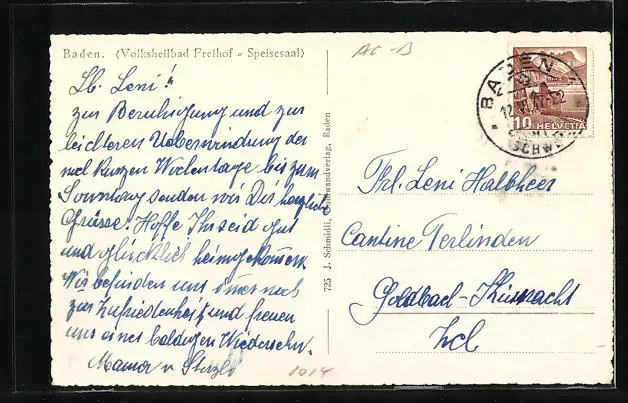 Baden. (Volksheilbad Freihof - Speisesaal)
AG - B
Lb. Leni!
zur Beruhigung und zur
leichteren Ueberwindung der
noch kurzen Wochentage bis zum
Sonntag senden wir Dir herzliche
Grüsse! Hoffe Ihr seid gut
und glücklich heimgekommen.
Wir befinden uns immer noch
zur Zufriedenheit und freuen
uns eines baldigen Wiedersehn.
Mama v
1014
725 J. Schmidli, Verlag, Baden
BADEN
12.
SCHWEIZ
10 HELVETIA
Frl. Leni Halbheer
Cantine Terlinden
Goldbach-Küsnacht
Zch